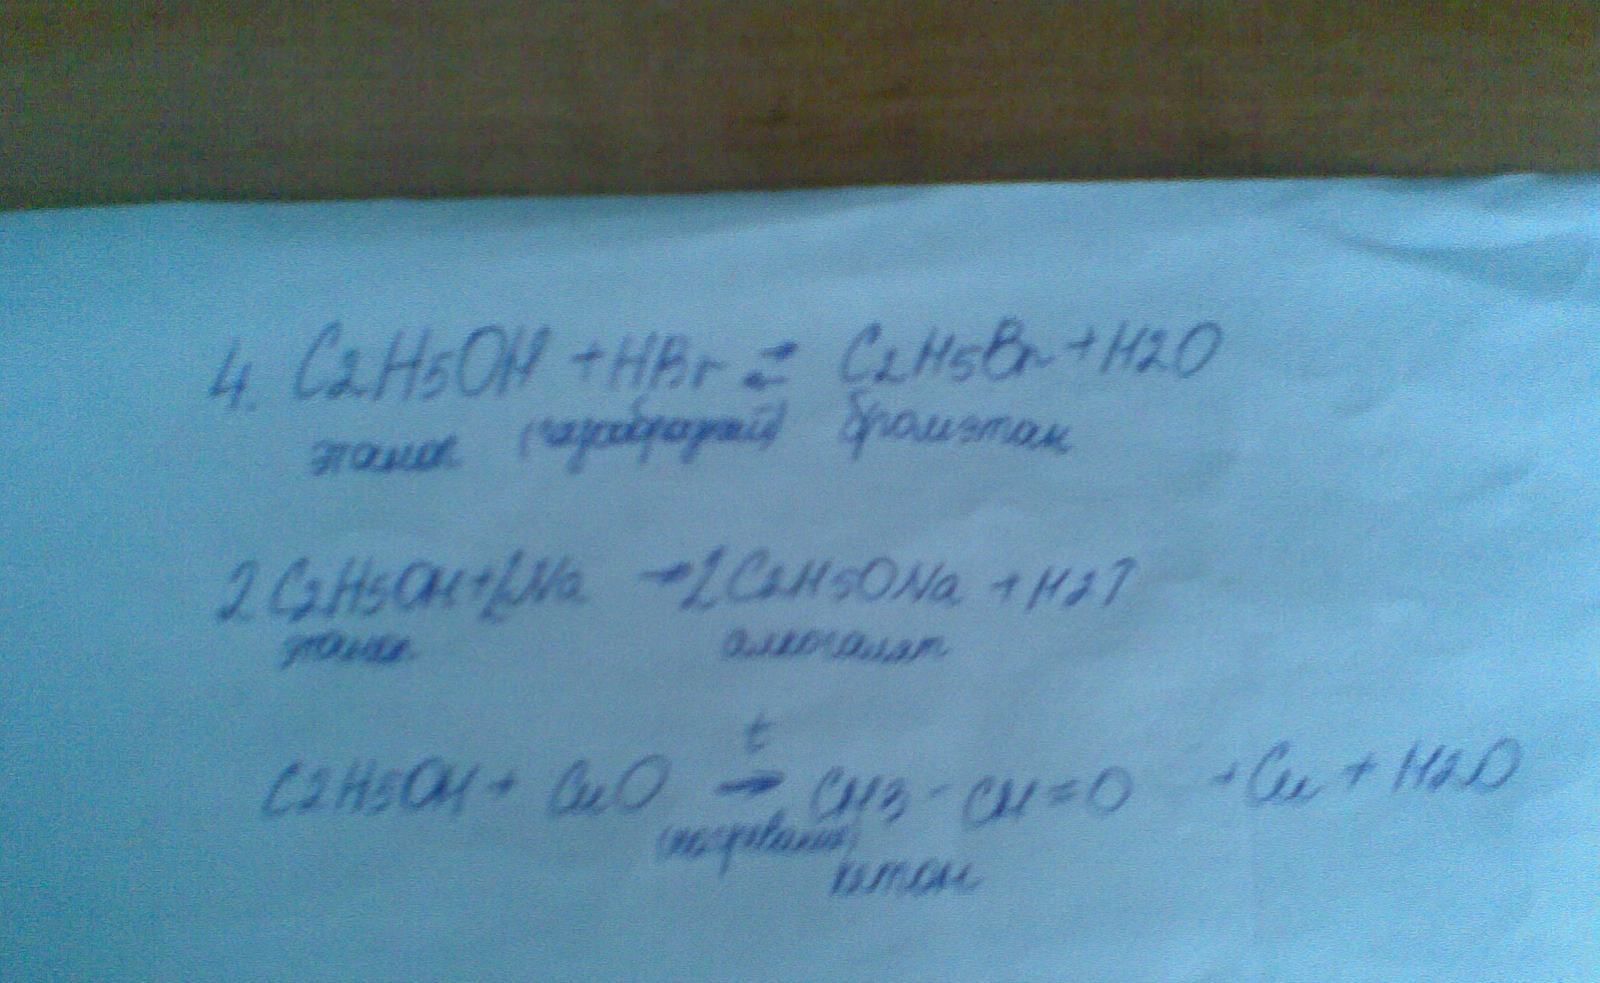 4. C2H5OH + HBr ⇄ C2H5Br + H2O
этанол (газообразный) бромэтан
2 C2H5OH + 2Na → 2 C2H5ONa + H2↑
этанол алкоголят
t
C2H5OH + CuO → CH3 - CH = O + Cu + H2O
(нагревание)
кетон